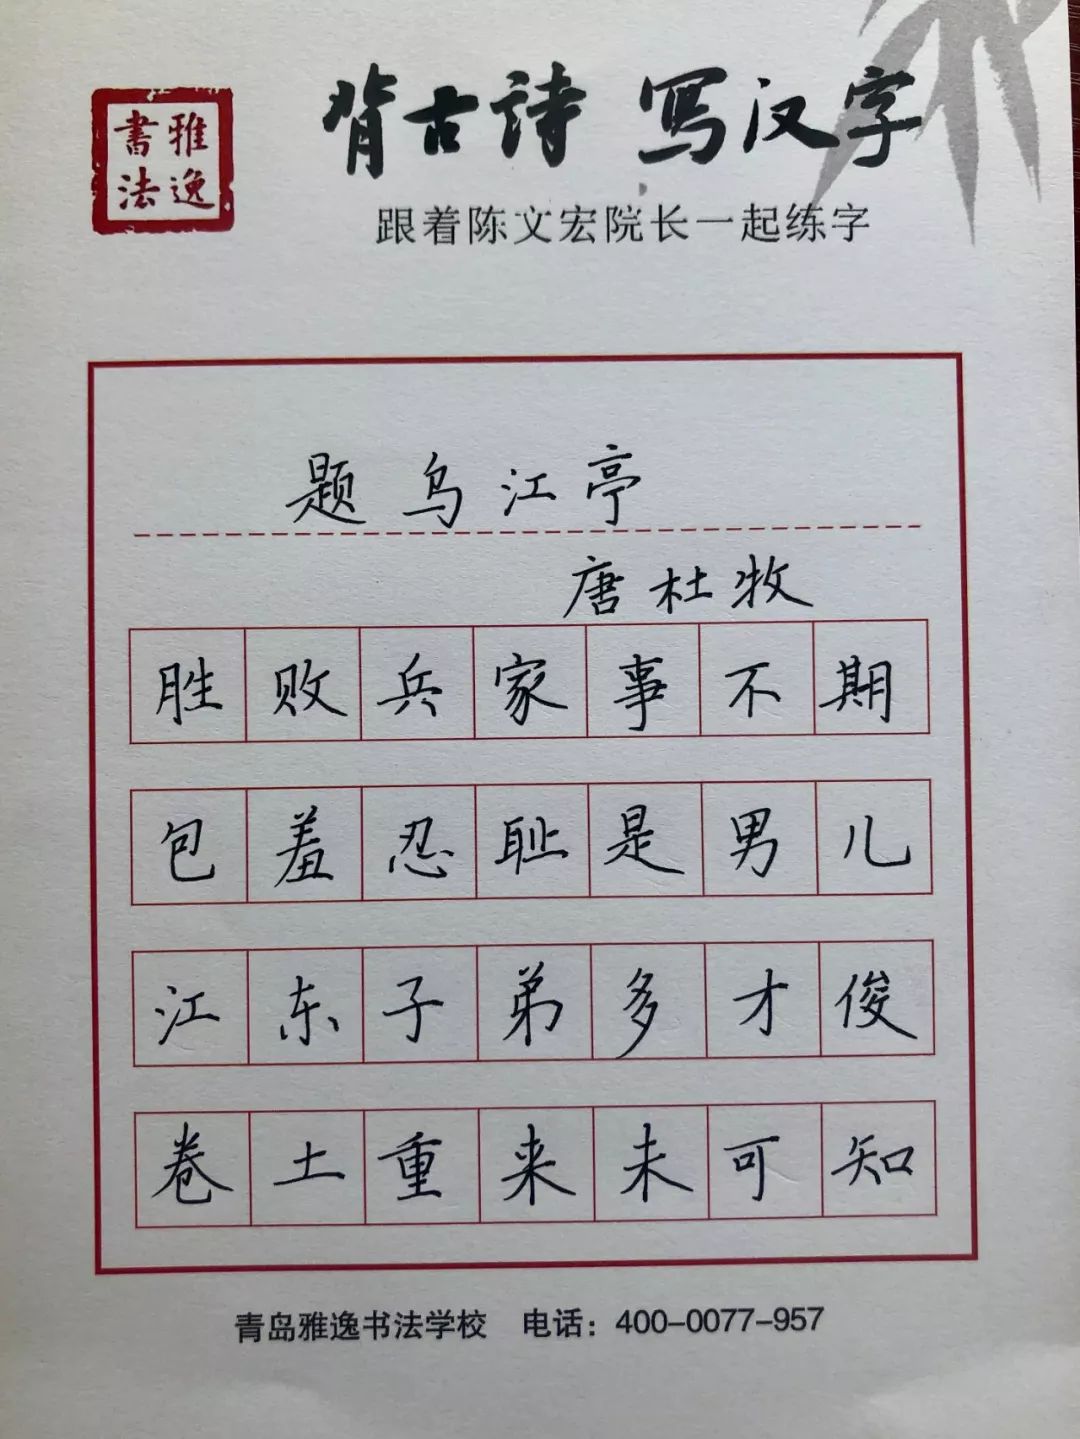 雅逸
書法
背古诗 写汉字
跟着陈文宏院长一起练字
题乌江亭
唐杜牧
胜败兵家事不期
包羞忍耻是男儿
江东子弟多才俊
卷土重来未可知
青岛雅逸书法学校 电话：400-0077-957